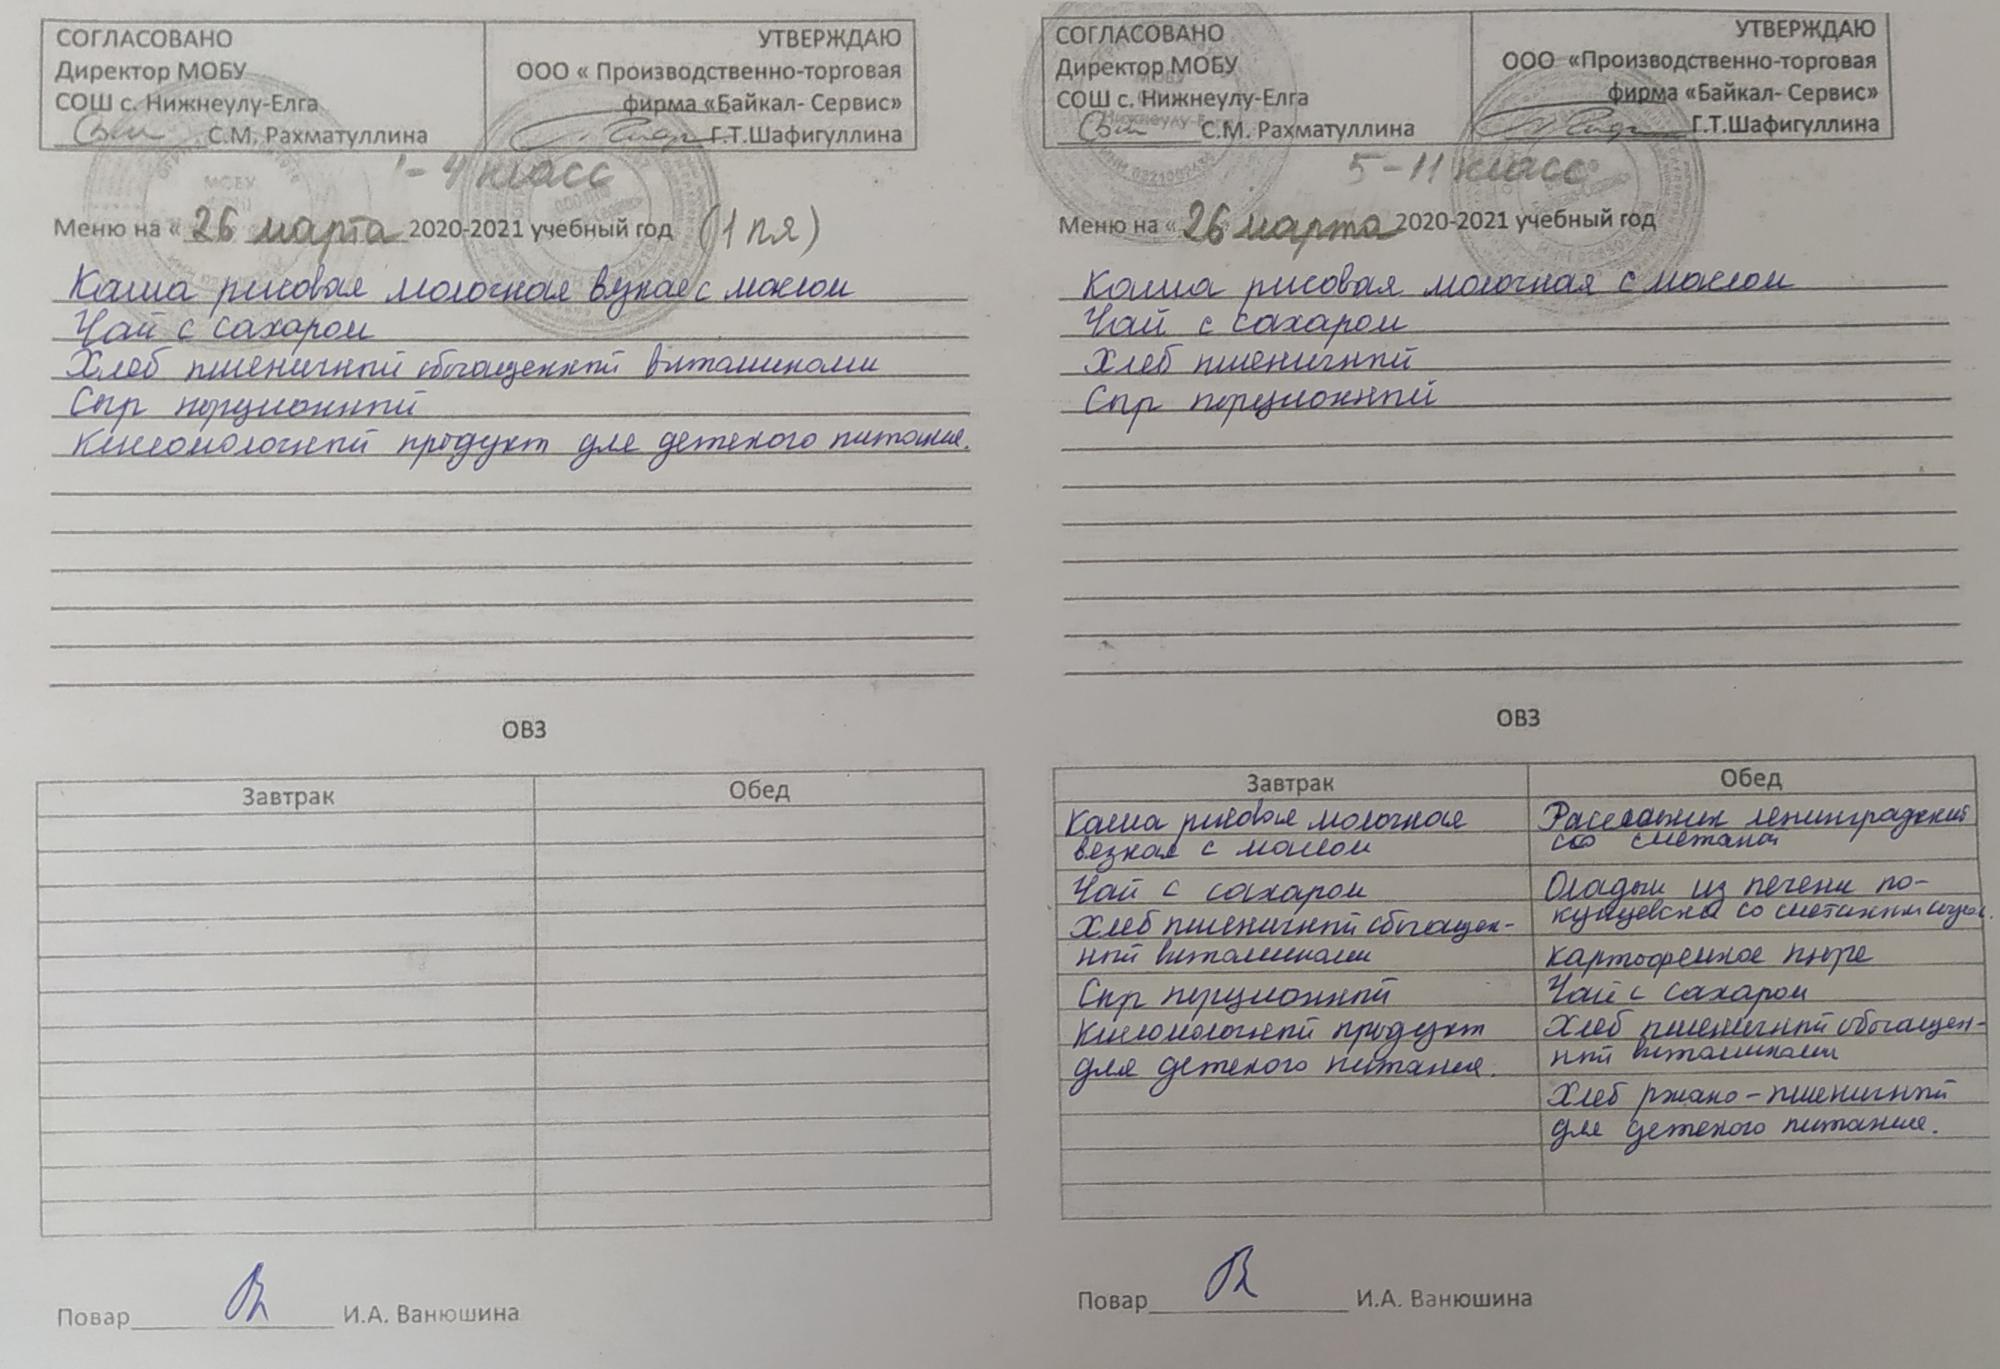 СОГЛАСОВАНО
Директор МОБУ
СОШ с. Нижнеулу-Елга
С.М. Рахматуллина
УТВЕРЖДАЮ
ООО « Производственно-торговая
фирма «Байкал- Сервис»
Г.Т.Шафигуллина
1-4 класс
Меню на « 26 марта 2020-2021 учебный год (1 пя)
Каша рисовая молочная вязкая с маслом
Чай с сахаром
Хлеб пшеничный обогащенный витаминами
Сыр порционный
Кисломолочный продукт для детского питания.
ОВЗ
Завтрак
Обед
Повар И.А. Ванюшина
СОГЛАСОВАНО
Директор МОБУ
СОШ с. Нижнеулу-Елга
С.М. Рахматуллина
УТВЕРЖДАЮ
ООО «Производственно-торговая
фирма «Байкал- Сервис»
Г.Т.Шафигуллина
5-11 класс
Меню на « 26 марта 2020-2021 учебный год
Каша рисовая молочная с маслом
Чай с сахаром
Хлеб пшеничный
Сыр порционный
ОВЗ
Завтрак
Каша рисовая молочная
вязкая с маслом
Чай с сахаром
Хлеб пшеничный обогащен-
ный витаминами
Сыр порционный
Кисломолочный продукт
для детского питания.
Обед
Рассольник ленинградский
со сметаной
Оладьи из печени по-
кунцевски со сметанным
картофельное пюре
Чай с сахаром
Хлеб пшеничный обогащен-
ный витаминами
Хлеб ржано-пшеничный
для детского питания.
Повар И.А. Ванюшина